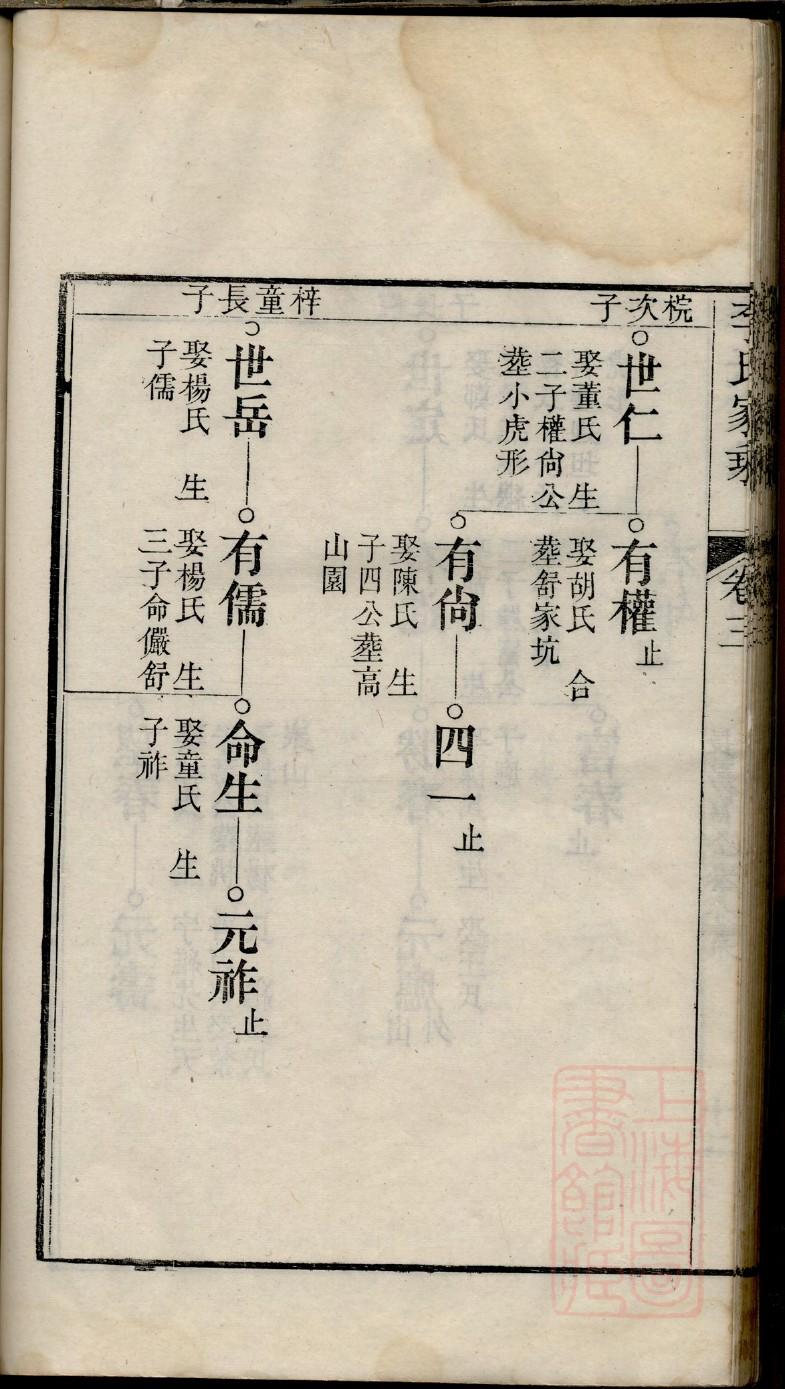 李氏家乘
卷三
梡次子
世仁
娶董氏 生
二子權尙公
塟小虎形
有權止
娶胡氏 合
塟舒家坑
有尙
娶陳氏 生
子四公塟高
山園
四一止
梓童長子
世岳
娶楊氏 生
子儒
有儒
娶楊氏 生
三子命儼舒
命生
娶童氏 生
子祚
元祚止
上海圖
書館藏